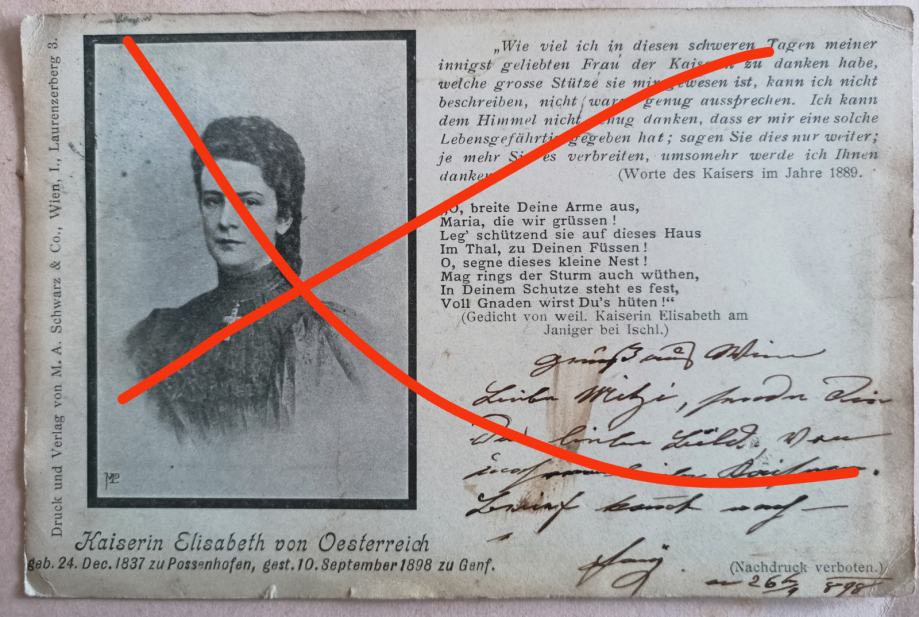 Druck und Verlag von M. A. Schwarz & Co., Wien, I., Laurenzerberg 3.
„Wie viel ich in diesen schweren Tagen meiner
innigst geliebten Frau der Kaiserin zu danken habe,
welche grosse Stütze sie mir gewesen ist, kann ich nicht
beschreiben, nicht warm genug aussprechen. Ich kann
dem Himmel nicht genug danken, dass er mir eine solche
Lebensgefährtin gegeben hat; sagen Sie dies nur weiter;
je mehr Sie es verbreiten, umsomehr werde ich Ihnen
danken (Worte des Kaisers im Jahre 1889.
„O, breite Deine Arme aus,
Maria, die wir grüssen!
Leg' schützend sie auf dieses Haus
Im Thal, zu Deinen Füssen!
O, segne dieses kleine Nest!
Mag rings der Sturm auch wüthen,
In Deinem Schutze steht es fest,
Voll Gnaden wirst Du's hüten!“
(Gedicht von weil. Kaiserin Elisabeth am
Janiger bei Ischl.)
Gruß aus Wien
Liebe Mitzi, sende Dir
liebe Bild von
Kaiserin.
Brief kommt nach
Kaiserin Elisabeth von Oesterreich
geb. 24. Dec. 1837 zu Possenhofen, gest. 10. September 1898 zu Genf.
(Nachdruck verboten.)
26/9 898